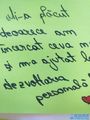 Mi-a plăcut
deoarece am
încercat ceva n
și m-a ajutat l
dezvoltarea
personală